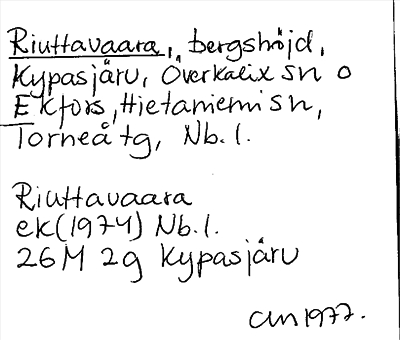 Riuttavaara, bergshöjd,
Kypasjärv, Överkalix sn o
Ekfors, Hietaniemi sn,
Torneå tg, Nb.l.
Riuttavaara
ek(1974) Nb.l.
26M 2g Kypasjärv
1977.